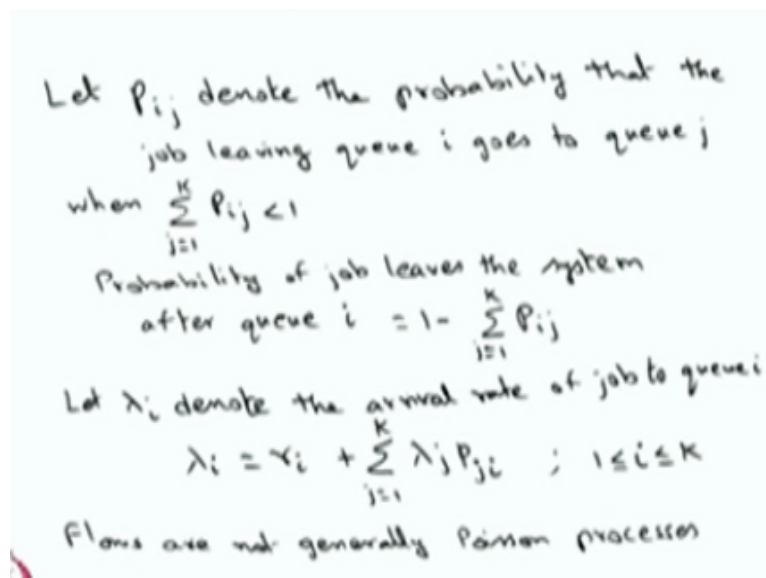 Let Pij denote the probability that the
job leaving queue i goes to queue j
when K∑j=1 Pij < 1
Probability of job leaves the system
after queue i = 1- K∑j=1 Pij
Let λi denote the arrival rate of job to queue i
λi = ri + K∑j=1 λj Pji ; 1≤i≤K
Flows are not generally Poisson processes